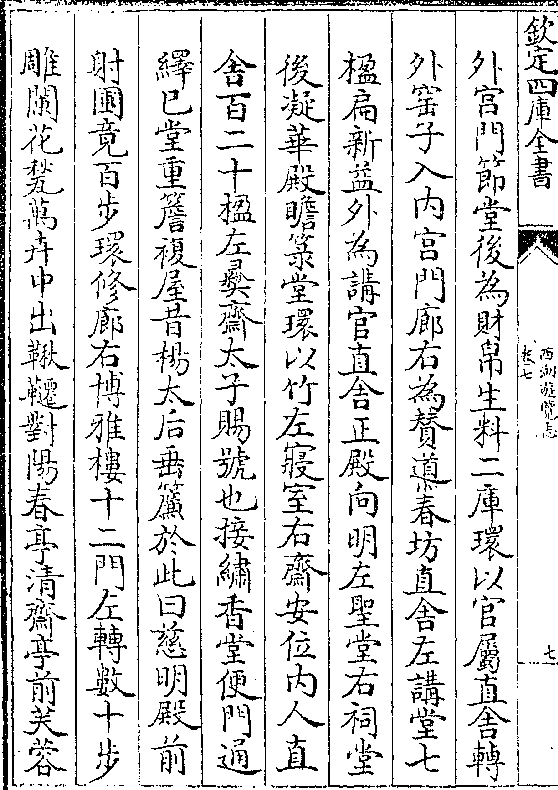 欽定四庫全書
西湖遊覽志
卷七
七
外宮門節堂後為財帛生料二庫環以官屬直舍轉
外窰子入内宫門廊右為贊道春坊直舍左講堂七
楹扁新益外為講官直舍正殿向明左聖堂右祠堂
後凝華殿瞻箓堂環以竹左寢室右齋安位内人直
舍百二十楹左彞齋太子賜號也接繡香堂便門通
繹已堂重簷複屋昔楊太后垂簾於此曰慈明殿前
射圃竟百步環修廊右博雅樓十二門左轉數十步
雕闌花甃萬卉中出鞦韆對陽春亭清齋亭前芙蓉